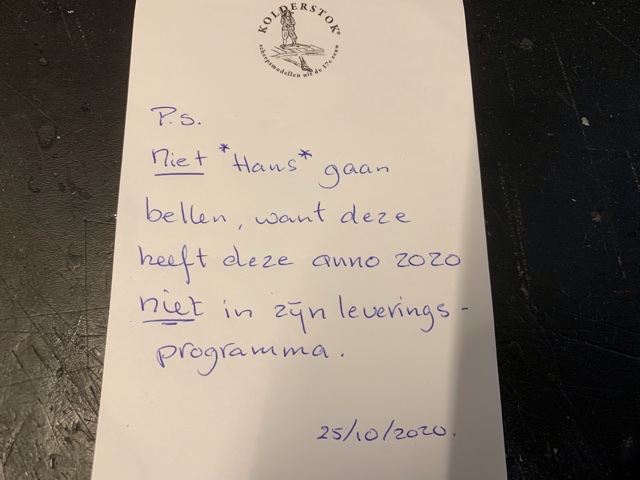 KOLDERSTOK®
scheepsmodellen uit de 17e eeuw
P.s.
niet *Hans* gaan
bellen, want deze
heeft deze anno 2020
niet in zijn leverings-
programma.
25/10/2020.